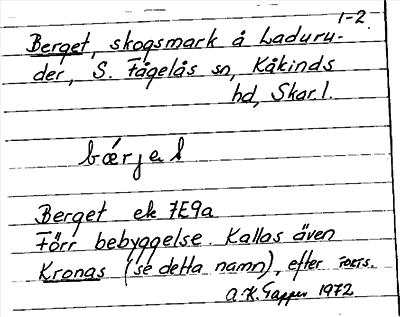 1-2.
Berget, skogsmark å Laduru-
der, S. Fågelås sn, Kåkinds
hd, Skar.l.
bærjet
Berget ek 7E9a
Förr bebyggelse. Kallas även
Kronas (se detta namn), efter
A.K. 1972